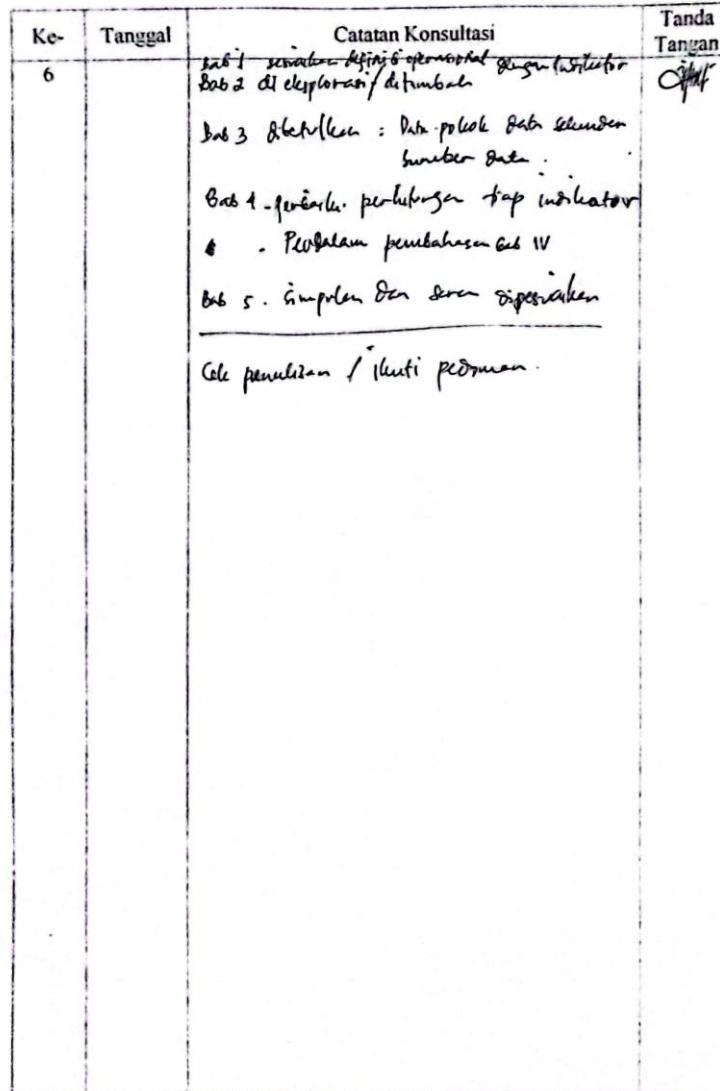 Ke- Tanggal Catatan Konsultasi Tanda Tangan
Bab 1 sesuaikan definisi operasional dengan indikator
6 Bab 2 di eksplorasi / ditambah
Bab 3 dibetulkan : Data pokok data sekunder
Sumber data .
Bab 4 - perhitungan tiap indikator
. Perdalam pembahasan Bab IV
Bab 5 . Simpulan dan saran disesuaikan
Cek penulisan / ikuti pedoman .